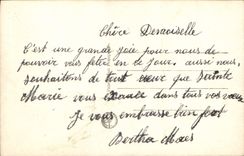 Chère Demoiselle
C'est une grande joie pour nous de
pouvoir vous fêter en ce jour. aussi nous
souhaitons de tout cœur que Sainte
Marie vous exauce dans tous vos vœux
Je vous embrasse bien fort
Bertha Maes